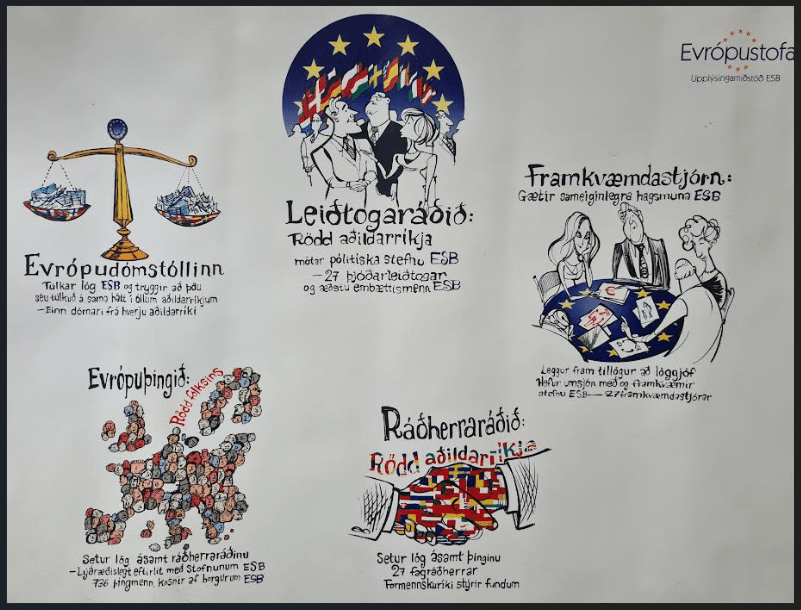 Evrópustofa
Upplýsingamiðstöð ESB
Leiðtogaráðið:
Rödd aðildarríkja
mótar pólitíska stefnu ESB
– 27 þjóðarleiðtogar
og æðstu embættismenn ESB
Evrópudómstóllinn
Túlkar lög ESB og tryggir að þau
séu túlkuð á sama hátt í öllum aðildarríkjum
– Einn dómari frá hverju aðildarríki
Framkvæmdastjórn:
Gætir sameiginlegra hagsmuna ESB
Leggur fram tillögur að löggjöf
Hefur umsjón með og framkvæmir
stefnu ESB — 27 framkvæmdastjórar
Evrópuþingið:
Rödd fólksins
Setur lög ásamt ráðherraráðinu
– Lýðræðislegt eftirlit með Stofnunum ESB
736 þingmenn, kosnir af borgurum ESB
Ráðherraráðið:
Rödd aðildarríkja
Setur lög ásamt þinginu
27 fagráðherrar
Formennskuríki stýrir fundum